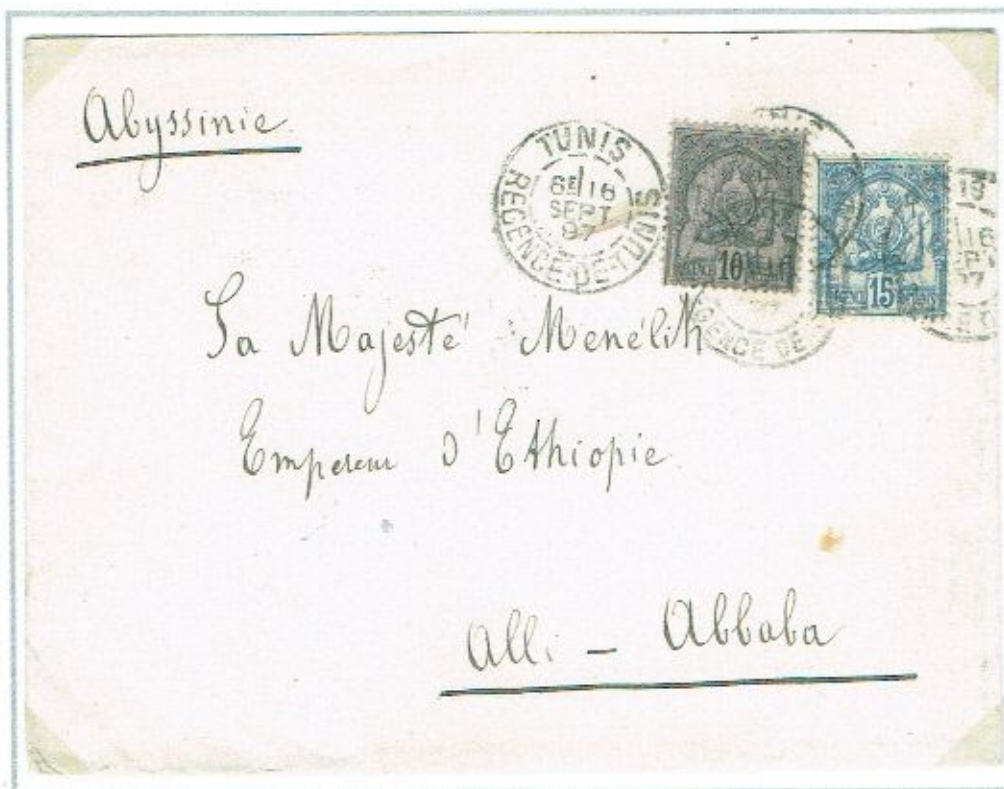 Abyssinie
TUNIS
6E/16
SEPT
97
REGENCE-DE-TUNIS
10
15
GENCE DE
Sa Majesté Menélik
Empereur d'Ethiopie
Alli - Abbaba